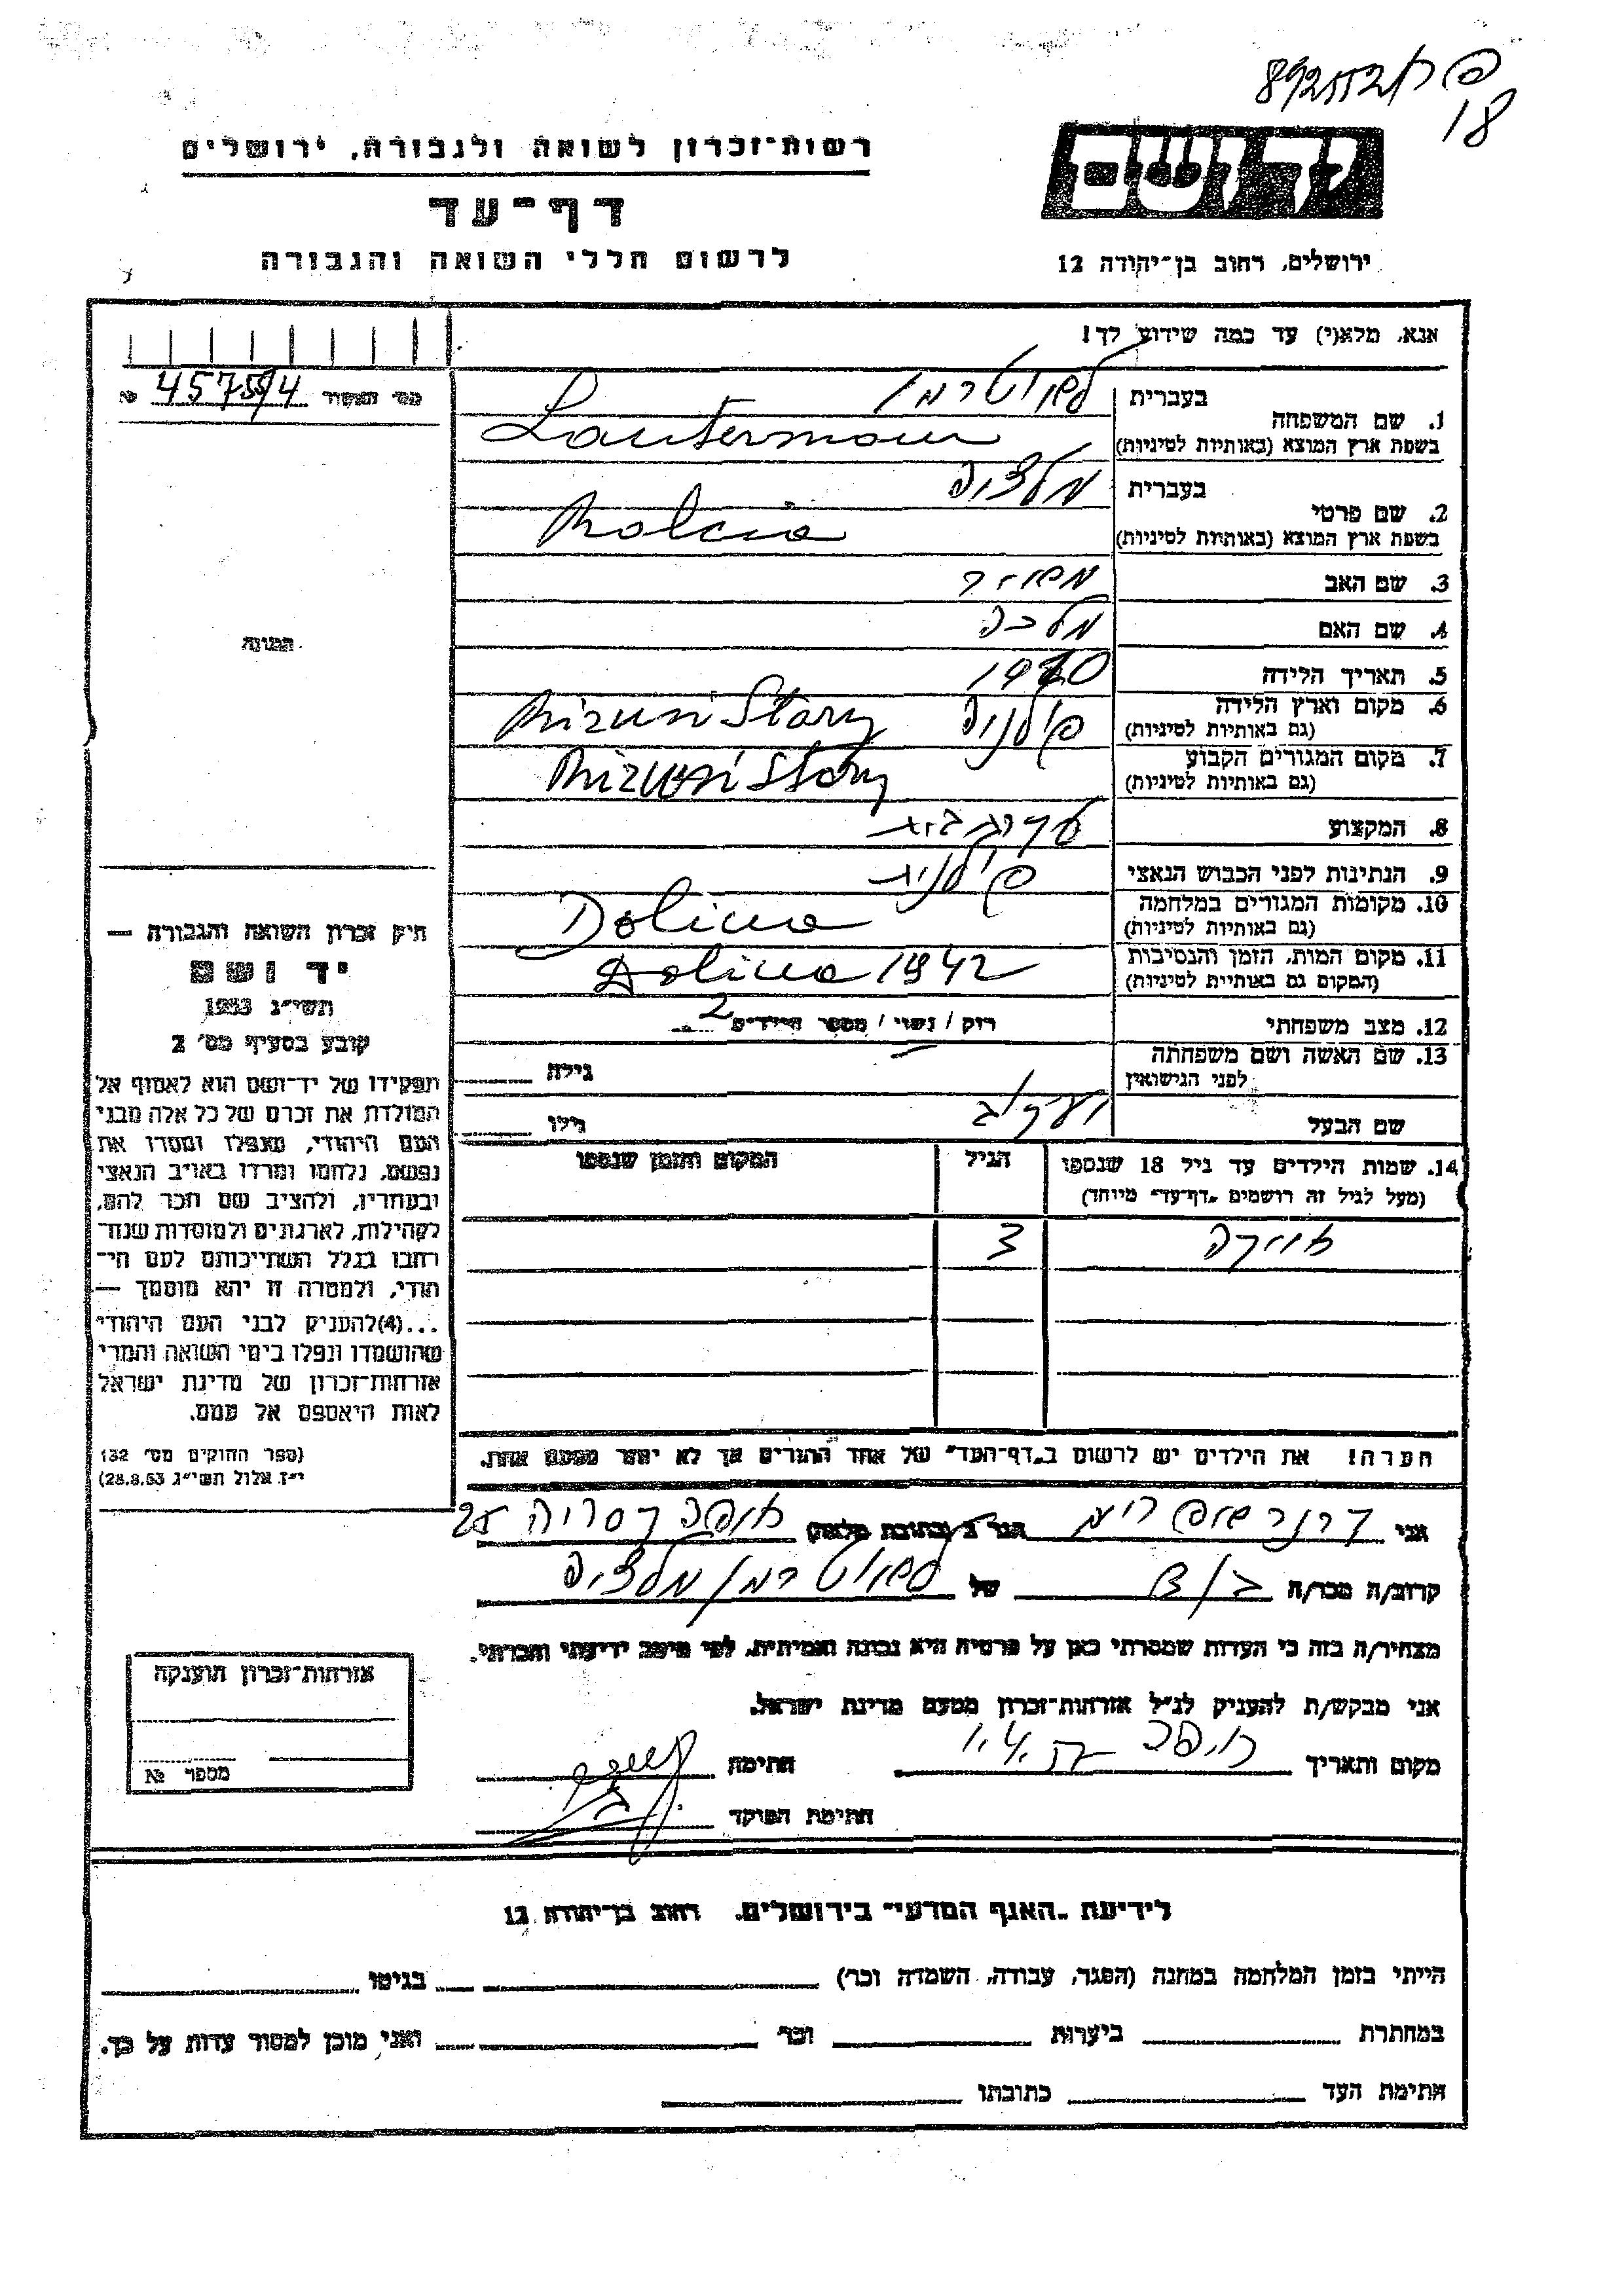 18
רשות־זכרון לשואה ולגבורה, ירושלים
ושם
דף־עד
לרשום חללי השואה והגבורה
ירושלים, רחוב בן־יהודה 12
אנא, מלא(י) עד כמה שידוע לך!
457594
1. שם המשפחה
בעברית לאוטרמן
בשפת ארץ המוצא (באותיות לטיניות) Lauterman
2. שם פרטי
בעברית מלציה
בשפת ארץ המוצא (באותיות לטיניות) Molcia
3. שם האב מאיר
4. שם האם מלכה
5. תאריך הלידה
6. מקום וארץ הלידה (גם באותיות לטיניות) פולניה Mizuń Stary
7. מקום המגורים הקבוע (גם באותיות לטיניות) Mizuń Stary
8. המקצוע עקרת בית
9. הנתינות לפני הכבוש הנאצי פולנית
10. מקומות המגורים במלחמה (גם באותיות לטיניות) Dolina
11. מקום המות, הזמן והנסיבות (המקום גם באותיות לטיניות) Dolina 1942
12. מצב משפחתי רוק / נשוי / מספר הילדים 2
13. שם האשה ושם משפחתה לפני הנישואין גילה
שם הבעל גילו
14. שמות הילדים עד גיל 18 שנספו (מעל לגיל זה רושמים „דף־עד" מיוחד)
הגיל
המקום והזמן שנספו
3
הערה! את הילדים יש לרשום ב„דף־העד" של אחד ההורים אך לא יותר מפעם אחת.
התמונה
חוק זכרון השואה והגבורה —
יד ושם
תשי"ג 1953
קובע בסעיף מס' 2
תפקידו של יד־ושם הוא לאסוף אל
המולדת את זכרם של כל אלה מבני
העם היהודי, שנפלו ומסרו את
נפשם, נלחמו ומרדו באויב הנאצי
ובעוזריו, ולהציב שם וזכר להם,
לקהילות, לארגונים ולמוסדות שנח־
רבו בגלל השתייכותם לעם הי־
הודי, ולמטרה זו יהא מוסמך —
...(4)להעניק לבני העם היהודי
שהושמדו ונפלו בימי השואה והמרי
אזרחות־זכרון של מדינת ישראל
לאות היאספם אל עמם.
(ספר החוקים מס' 132
י"ז אלול תשי"ג 28.8.53)
אני הגר ב (כתובת מלאה)
קרוב/ה מכר/ה של לאוטרמן מלציה
מצהיר/ה בזה כי העדות שמסרתי כאן על פרטיה היא נכונה ואמיתית, לפי מיטב ידיעתי והכרתי.
אני מבקש/ת להעניק לנ"ל אזרחות־זכרון מטעם מדינת ישראל.
מקום ותאריך חתימה
חתימת הפוקד
אזרחות־זכרון הוענקה
מספר №
לידיעת „האגף המדעי" בירושלים, רחוב בן־יהודה 12
הייתי בזמן המלחמה במחנה (הסגר, עבודה, השמדה וכו') בגיטו
במחתרת ביערות וכו' ואני מוכן למסור עדות על כך.
חתימת העד כתובתו